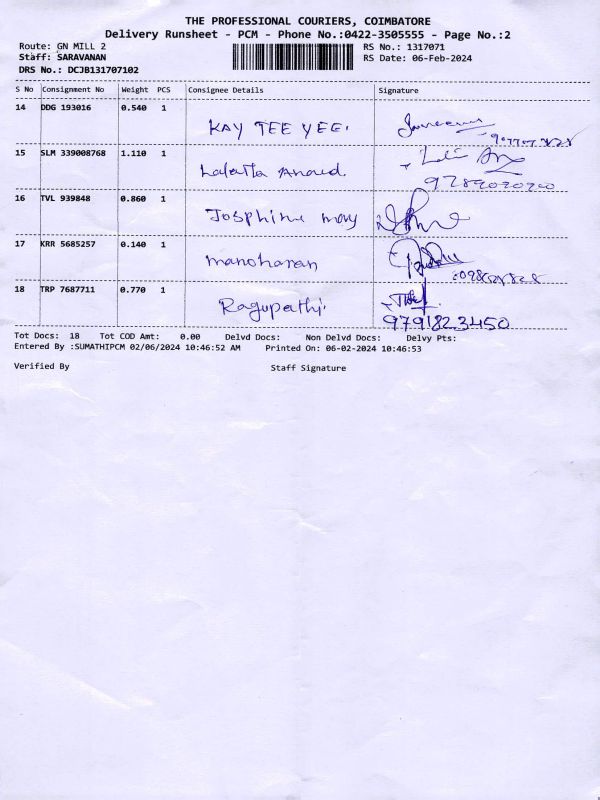 THE PROFESSIONAL COURIERS, COIMBATORE
Delivery Runsheet - PCM - Phone No.:0422-3505555 - Page No.:2
Route: GN MILL 2 RS No.: 1317071
Staff: SARAVANAN RS Date: 06-Feb-2024
DRS No.: DCJB131707102
S No Consignment No Weight PCS Consignee Details Signature
14 DDG 193016 0.540 1 KAY TEE YEE.
15 SLM 339008768 1.110 1
16 TVL 939848 0.860 1 Josphine may
17 KRR 5685257 0.140 1 manoharan
18 TRP 7687711 0.770 1 Ragupathi.
9791823450
Tot Docs: 18 Tot COD Amt: 0.00 Delvd Docs: Non Delvd Docs: Delvy Pts:
Entered By :SUMATHIPCM 02/06/2024 10:46:52 AM Printed On: 06-02-2024 10:46:53
Verified By Staff Signature